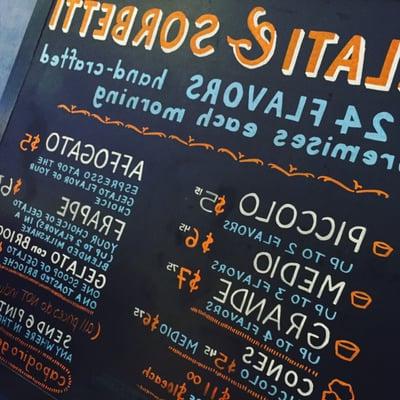 LATI & SORBETTI
24 FLAVORS hand-crafted
premises each morning
PICCOLO $5
UP TO 2 FLAVORS
MEDIO $6.45
UP TO 3 FLAVORS
GRANDE $7.75
UP TO 4 FLAVORS
CONES
PICCOLO $5.45 MEDIO $6.75
$11.00
AFFOGATO $5
ESPRESSO ATOP THE
GELATO FLAVOR OF YOUR
CHOICE
FRAPPE $6
YOUR CHOICE OF GELATO
(UP TO 2 FLAVORS) IN A
MILKSHAKE
GELATO con BRIOCHE
ONE SCOOP OF GELATO
ON A TOASTED BRIOCHE
(all prices do not
SEND 6 PINTS
ANYWHERE IN THE
capogiro